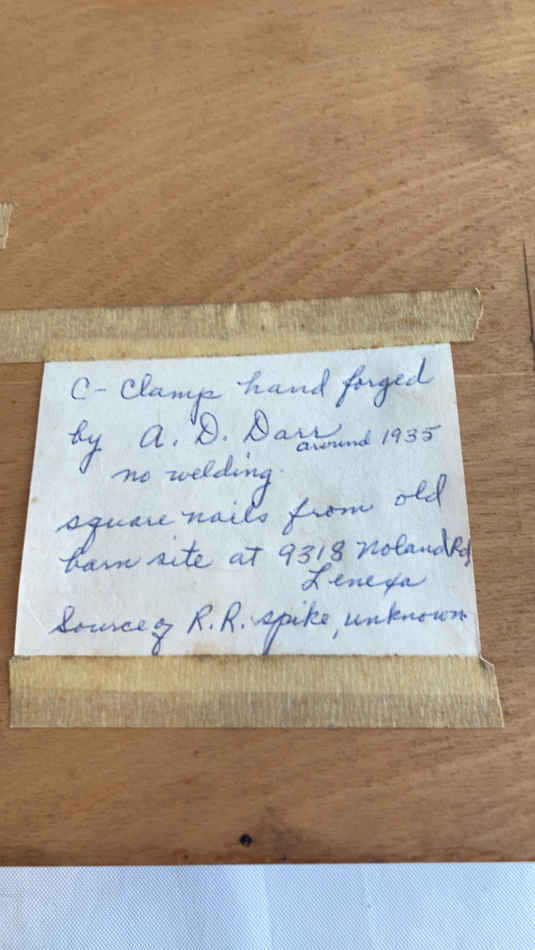 C- Clamp hand forged
by A. D. Darr around 1935
no welding.
square nails from old
barn site at 9318 Noland Rd,
Lenexa
Source of R.R. spike, unknown